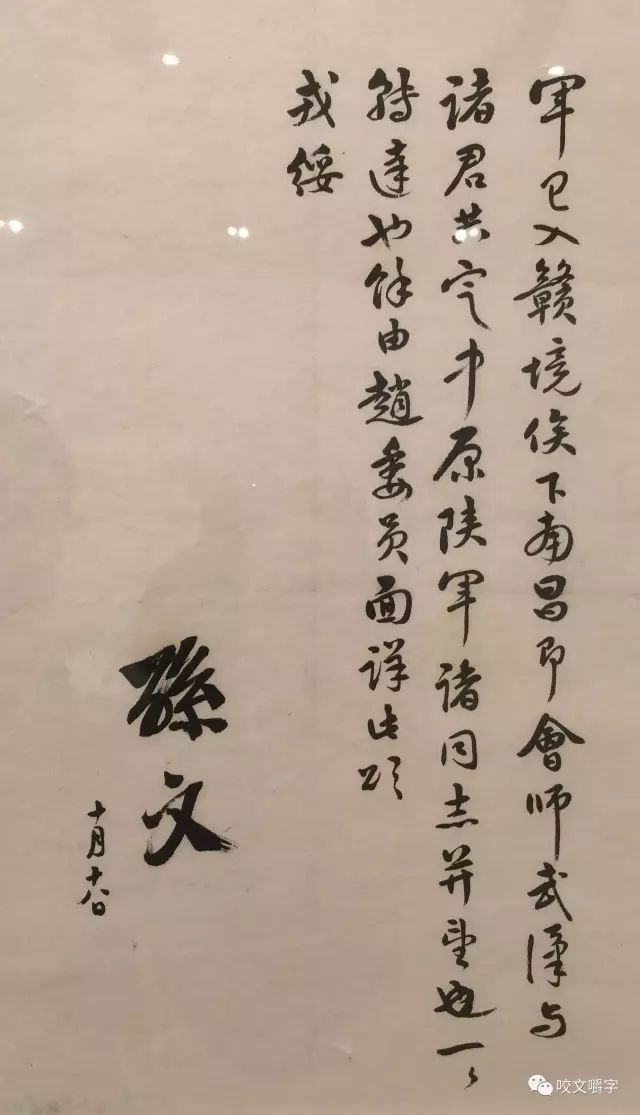 軍已入贛境俟下南昌即會師武漢与
诸君共定中原陕軍诸同志并望為一々
轉達也餘由趙委員面详此頌
戎绥
孫文
十月十八日
咬文嚼字